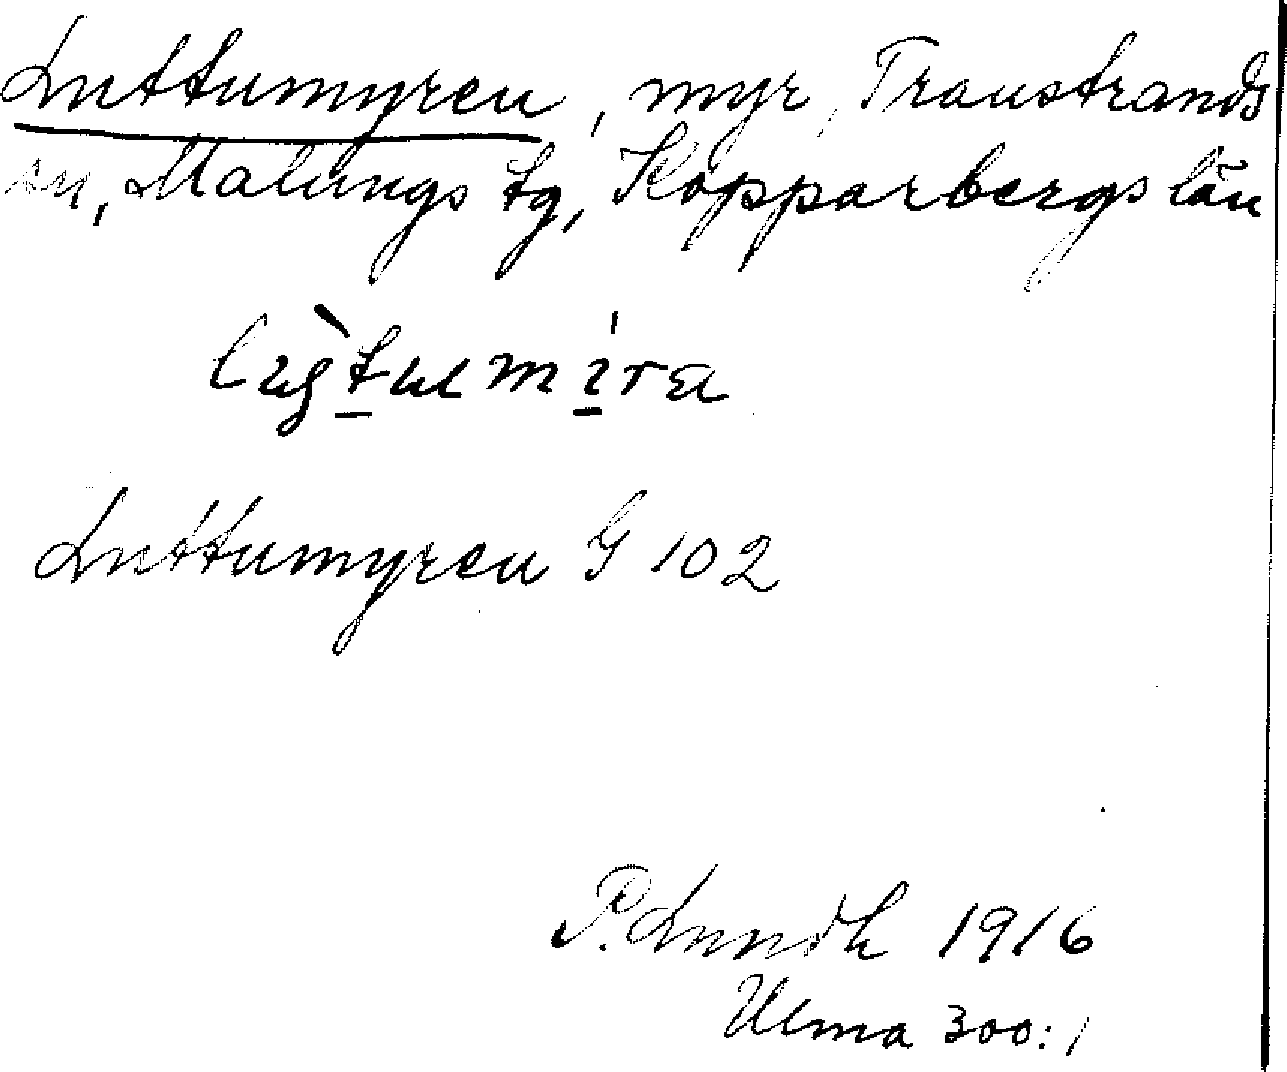 Luttumyren, myr, Transtrands
sn, Malungs tg, Kopparbergs län
Luttumyren G 102
P. Lundh 1916
Ulma 300:1